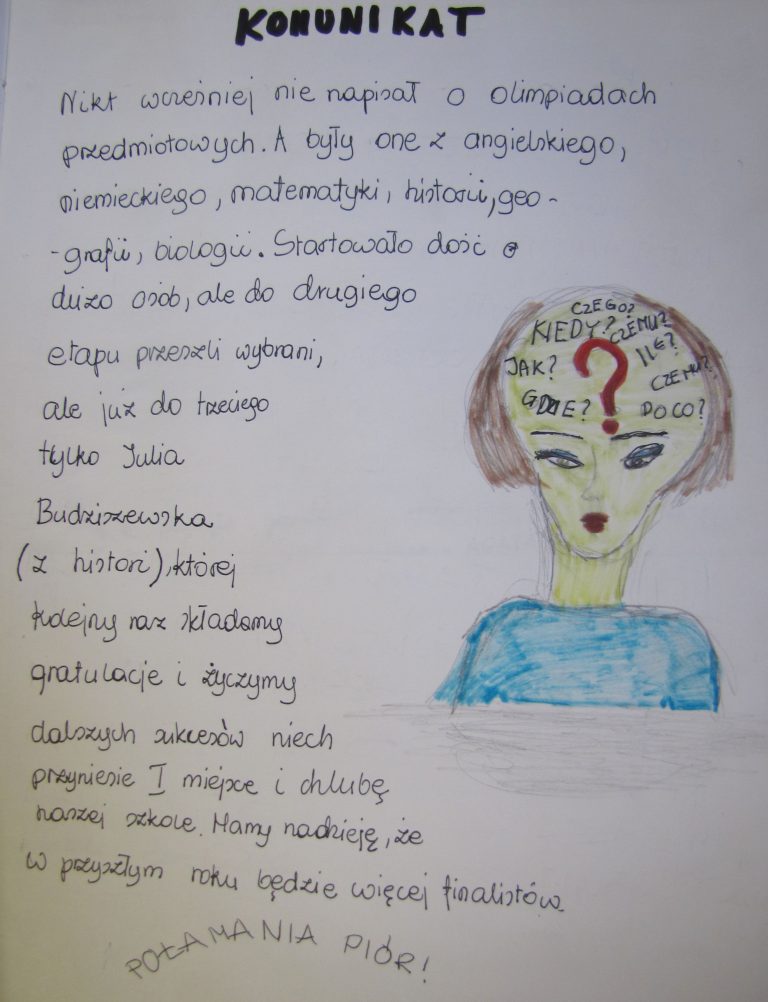 KOMUNIKAT
Nikt wcześniej nie napisał o olimpiadach
przedmiotowych. A były one z angielskiego,
niemieckiego, matematyki, historii, geo-
-grafii, biologii. Startowało dość
dużo osób, ale do drugiego
etapu przeszli wybrani,
ale już do trzeciego
tylko Julia
Budziszewska
(z histori), której
kolejny raz składamy
gratulacje i życzymy
dalszych sukcesów niech
przyniesie I miejsce i chlubę
naszej szkole. Mamy nadzieję, że
w przyszłym roku będzie więcej finalistów.
POŁAMANIA PIÓR!
CZEGO?
KIEDY? CZEMU?
JAK? ? ILE?
CZEMU?
GDZIE? PO CO?